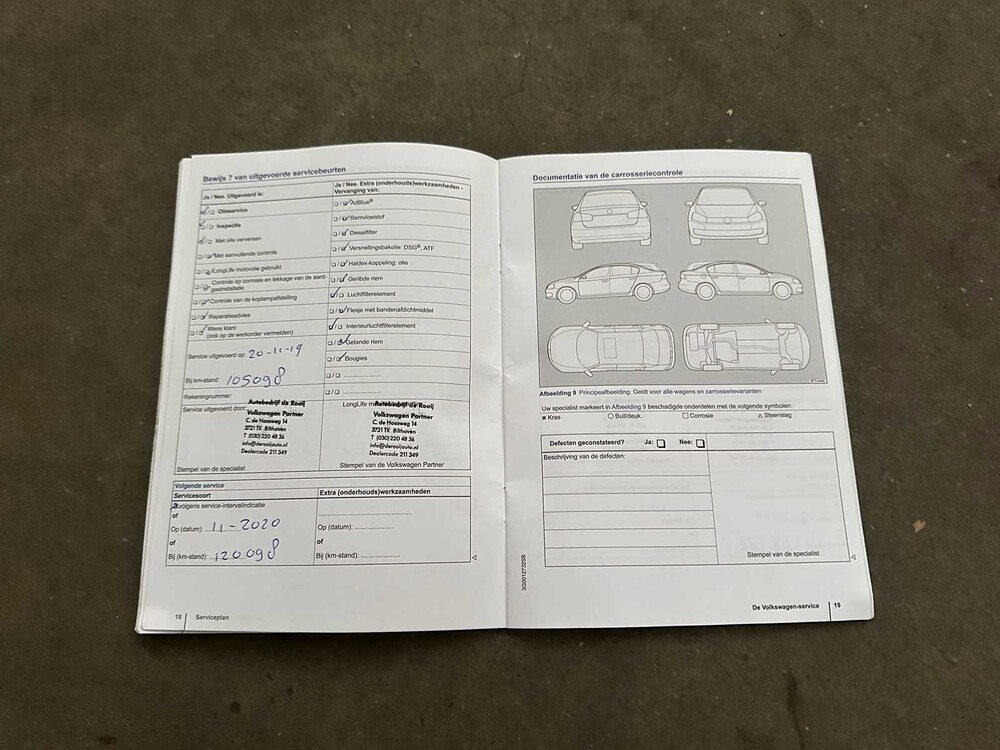 Bewijs 7 van uitgevoerde servicebeurten
Ja / Nee. Uitgevoerd is:
Olieservice
Inspectie
Met olie verversen
Met aanvullende controle
LongLife motorolie gebruikt
Controle op corrosie en lekkage van de aard-
gasinstallatie
Controle van de koplampafstelling
Reparatieadvies
Wens klant
(ook op de werkorder vermelden)
Service uitgevoerd op: 20-11-19
Bij km-stand: 105098
Rekeningnummer:
Service uitgevoerd door:
Autobedrijf de Rooij
Volkswagen Partner
C. de Haasweg 14
3721 TK Bilthoven
T (030) 220 48 36
info@derooijauto.nl
Dealercode 211 349
Stempel van de specialist
Ja / Nee. Extra (onderhouds)werkzaamheden -
Vervanging van:
AdBlue®
Remvloeistof
Dieselfilter
Versnellingsbakolie: DSG®, ATF
Haldex-koppeling: olie
Geribde riem
Luchtfilterelement
Flesje met bandenafdichtmiddel
Interieurluchtfilterelement
Getande riem
Bougies
LongLife
Autobedrijf de Rooij
Volkswagen Partner
C. de Haasweg 14
3721 TK Bilthoven
T (030) 220 48 36
info@derooijauto.nl
Dealercode 211 349
Stempel van de Volkswagen Partner
Volgende service
Servicesoort
volgens service-intervalindicatie
of
Op (datum): 11-2020
of
Bij (km-stand): 120098
Extra (onderhouds)werkzaamheden
Op (datum):
of
Bij (km-stand):
18 Serviceplan
Documentatie van de carrosseriecontrole
Afbeelding 9 Principeafbeelding. Geldt voor alle wagens en carrosserievarianten
Uw specialist markeert in Afbeelding 9 beschadigde onderdelen met de volgende symbolen:
× Kras ○ Buil/deuk □ Corrosie △ Steenslag
Defecten geconstateerd? Ja: □ Nee: □
Beschrijving van de defecten:
Stempel van de specialist
3G0012732SB
De Volkswagen-service 19